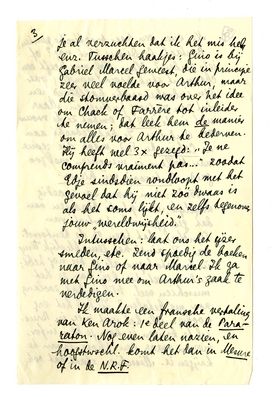 3
je al verzuchten dat ik het mis heb,
enz. Tusschen haakjes: Gino is bij
Gabriel Marcel geweest, die in principe
zeer veel voelde voor Arthur, maar
die stomverbaasd was over het idee
om Chack of Farrère tot inleider
te nemen; dat leek hem de manier
om alles voor Arthur te bederven.
Hij heeft wel 3x gezegd: "Je ne
comprends vraiment pas..." zoodat
Edje sindsdien rondloopt met het
gevoel dat hij niet zóó dwaas is
als het soms lijkt, en zelfs tegenover
jouw "wereldwijsheid."
Intusschen: laat ons het ijzer
smeden, etc. Zend spoedig de boeken
naar Gino of naar Marcel. Ik ga
met Gino mee om Arthur's zaak te
verdedigen.
Ik maakte een fransche vertaling
van Ken Arok: 1e deel van de Para-
raton. Nog even laten nazien, en
hoogstwschl. komt het dan in Mesure
of in de N.R.F.